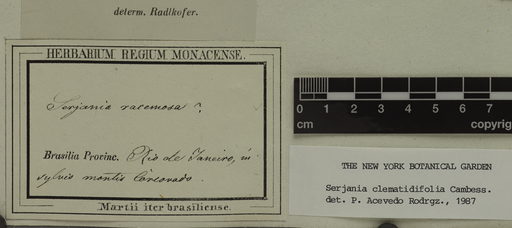 determ. Radlkofer.
HERBARIUM REGIUM MONACENSE.
Serjania racemosa ?
Brasilia Provinc. Rio de Janeiro, in
sylvis montis Corcovado.
Martii iter brasiliense.
0 1 2 3 4 5 6 7
cm copyrig
THE NEW YORK BOTANICAL GARDEN
Serjania clematidifolia Cambess.
det. P. Acevedo Rodrgz., 1987